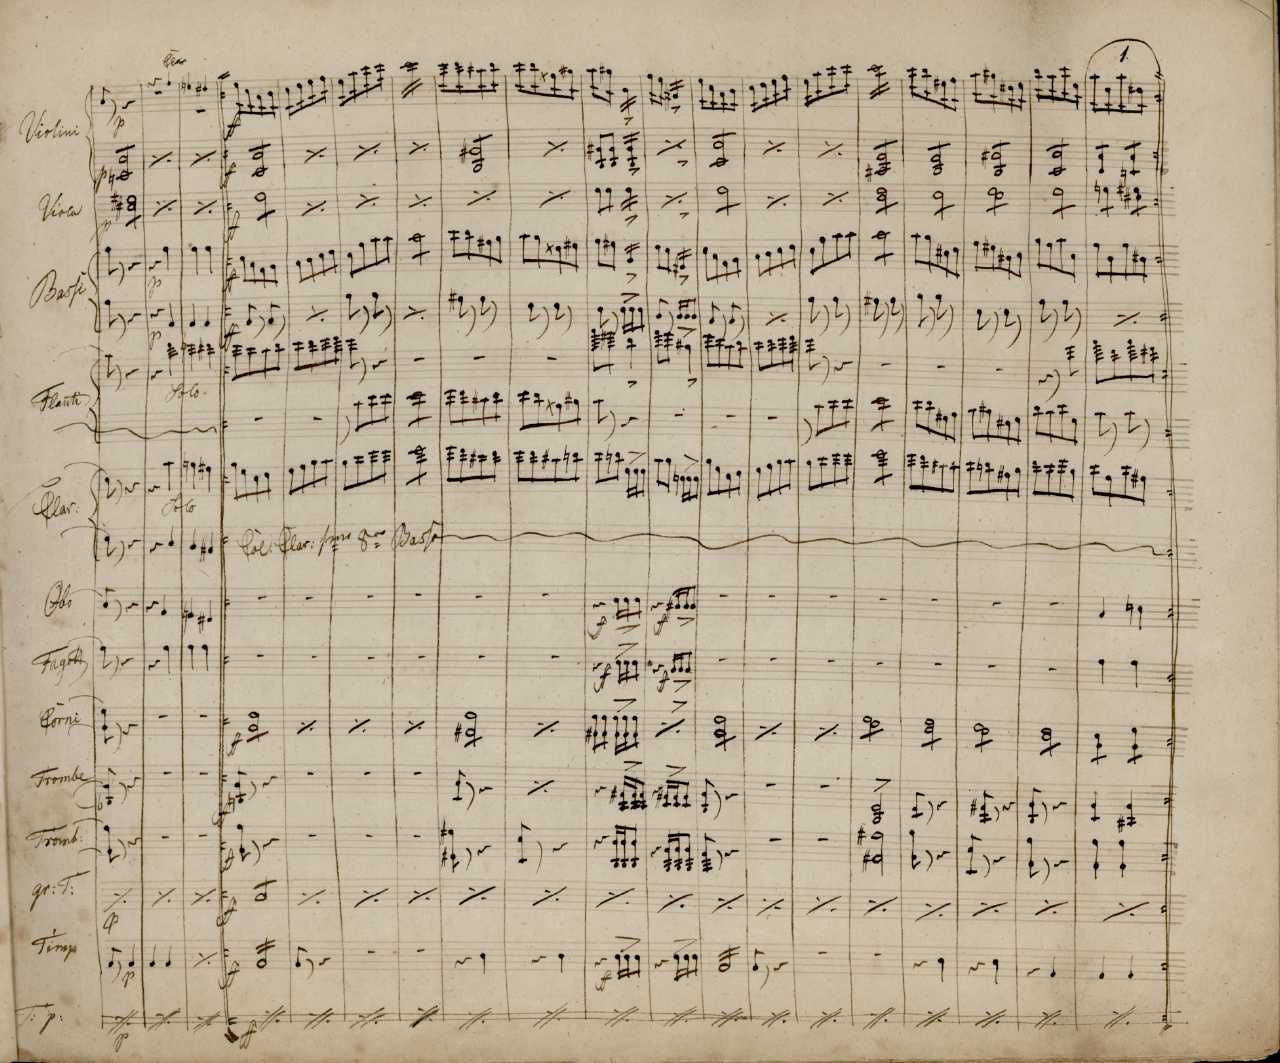 1.
Violini
p
p
f
Viola
p
f
Bassi
p
f
p
ff
Flauti
Solo.
Clar:
Solo
Col Clar: primo 8va Bassa
Obo
f
f
Fagotti
f
f
Corni
f
Trombe
Tromb:
gr: T:
p
f
Timp
p
f
f
T: p:
p
ff